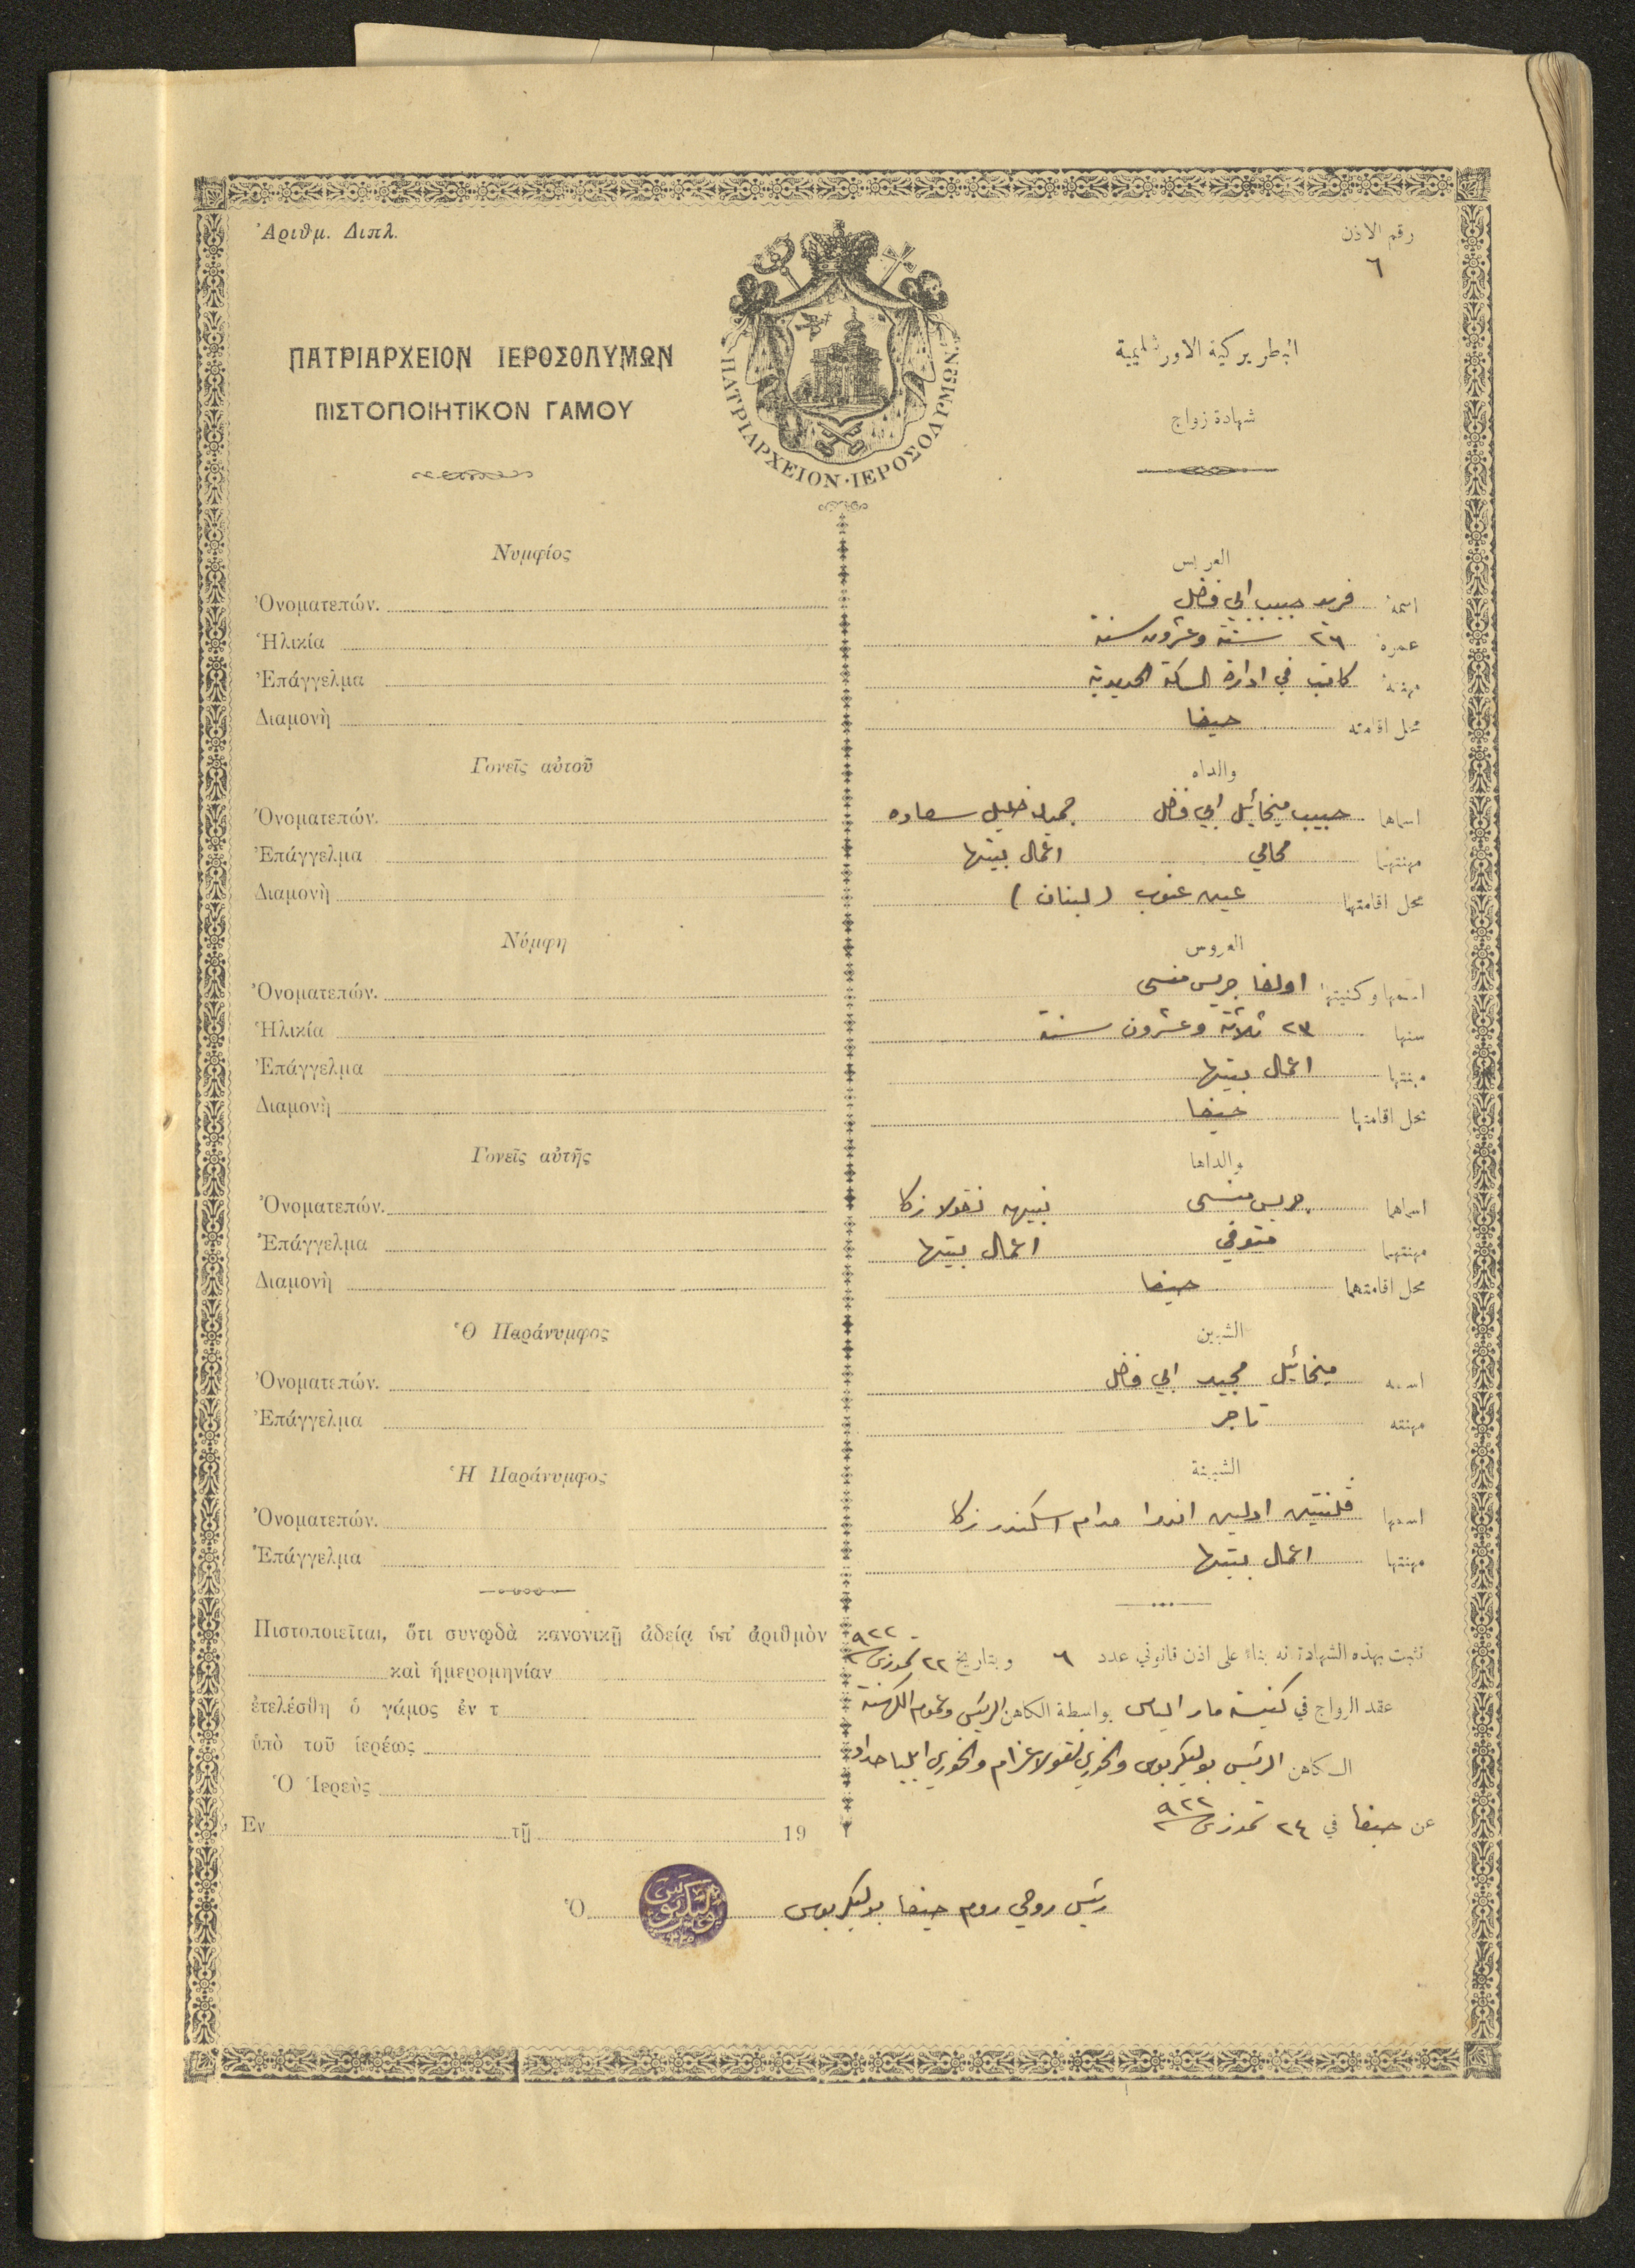 Ἀριθμ. Διπλ.
رقم الاذن
٦
ΠΑΤΡΙΑΡΧΕΙΟΝ ΙΕΡΟΣΟΛΥΜΩΝ
ΠΙΣΤΟΠΟΙΗΤΙΚΟΝ ΓΑΜΟΥ
ΠΑΤΡΙΑΡΧΕΙΟΝ·ΙΕΡΟΣΟΛΥΜΩΝ
البطريركية الاورشليمية
شهادة زواج
Νυμφίος
Ὀνοματεπών.
Ἡλικία
Ἐπάγγελμα
Διαμονὴ
Γονεῖς αὐτοῦ
Ὀνοματεπών.
Ἐπάγγελμα
Διαμονὴ
Νύμφη
Ὀνοματεπών.
Ἡλικία
Ἐπάγγελμα
Διαμονὴ
Γονεῖς αὐτῆς
Ὀνοματεπών.
Ἐπάγγελμα
Διαμονὴ
Ὁ Παράνυμφος
Ὀνοματεπών.
Ἐπάγγελμα
Ἡ Παράνυμφος
Ὀνοματεπών.
Ἐπάγγελμα
Πιστοποιεῖται, ὅτι συνῳδὰ κανονικῇ ἀδείᾳ ὑπ' ἀριθμὸν
καὶ ἡμερομηνίαν
ἐτελέσθη ὁ γάμος ἐν τ
ὑπὸ τοῦ ἱερέως
Ὁ Ἱερεὺς
Ἐν τῇ 19
Ὁ
العريس
اسمه فريد حبيب ابي فضل
عمره ٢٦ ستة وعشرون سنة
مهنته كاتب في ادارة السكة الحديدية
محل اقامته حيفا
والداه
اسماهما حبيب ميخائيل ابي فضل جميله خليل سعاده
مهنتهما محامي اعمال بيتها
محل اقامتهما عين عنوب (لبنان)
العروس
اسمها وكنيتها اولغا جريس منسى
سنها ٢٣ ثلاثة وعشرون سنة
مهنتها اعمال بيتها
محل اقامتها حيفا
والداها
اسماهما جريس منسى نبيهه نقولا زكا
مهنتهما متوفي اعمال بيتها
محل اقامتهما حيفا
الشبين
اسمه ميخائيل مجيد ابي فضل
مهنته تاجر
الشبينة
اسمها فلنتين مدام اسكندر زكا
مهنتها اعمال بيتها
نثبت بهذه الشهادة انه بناء على اذن قانوني عدد ٦ وبتاريخ ٢٢ تموز سنة ٩٢٢
عقد الزواج في كنيسة مار الياس بواسطة الكاهن الرئيس وعموم الكهنة
الكاهن الرئيس بوليكربوس والخوري نقولا عزام والخوري ايليا حداد
عن حيفا في ٢٤ تموز سنة ٩٢٢
رئيس روحي روم حيفا بوليكربوس